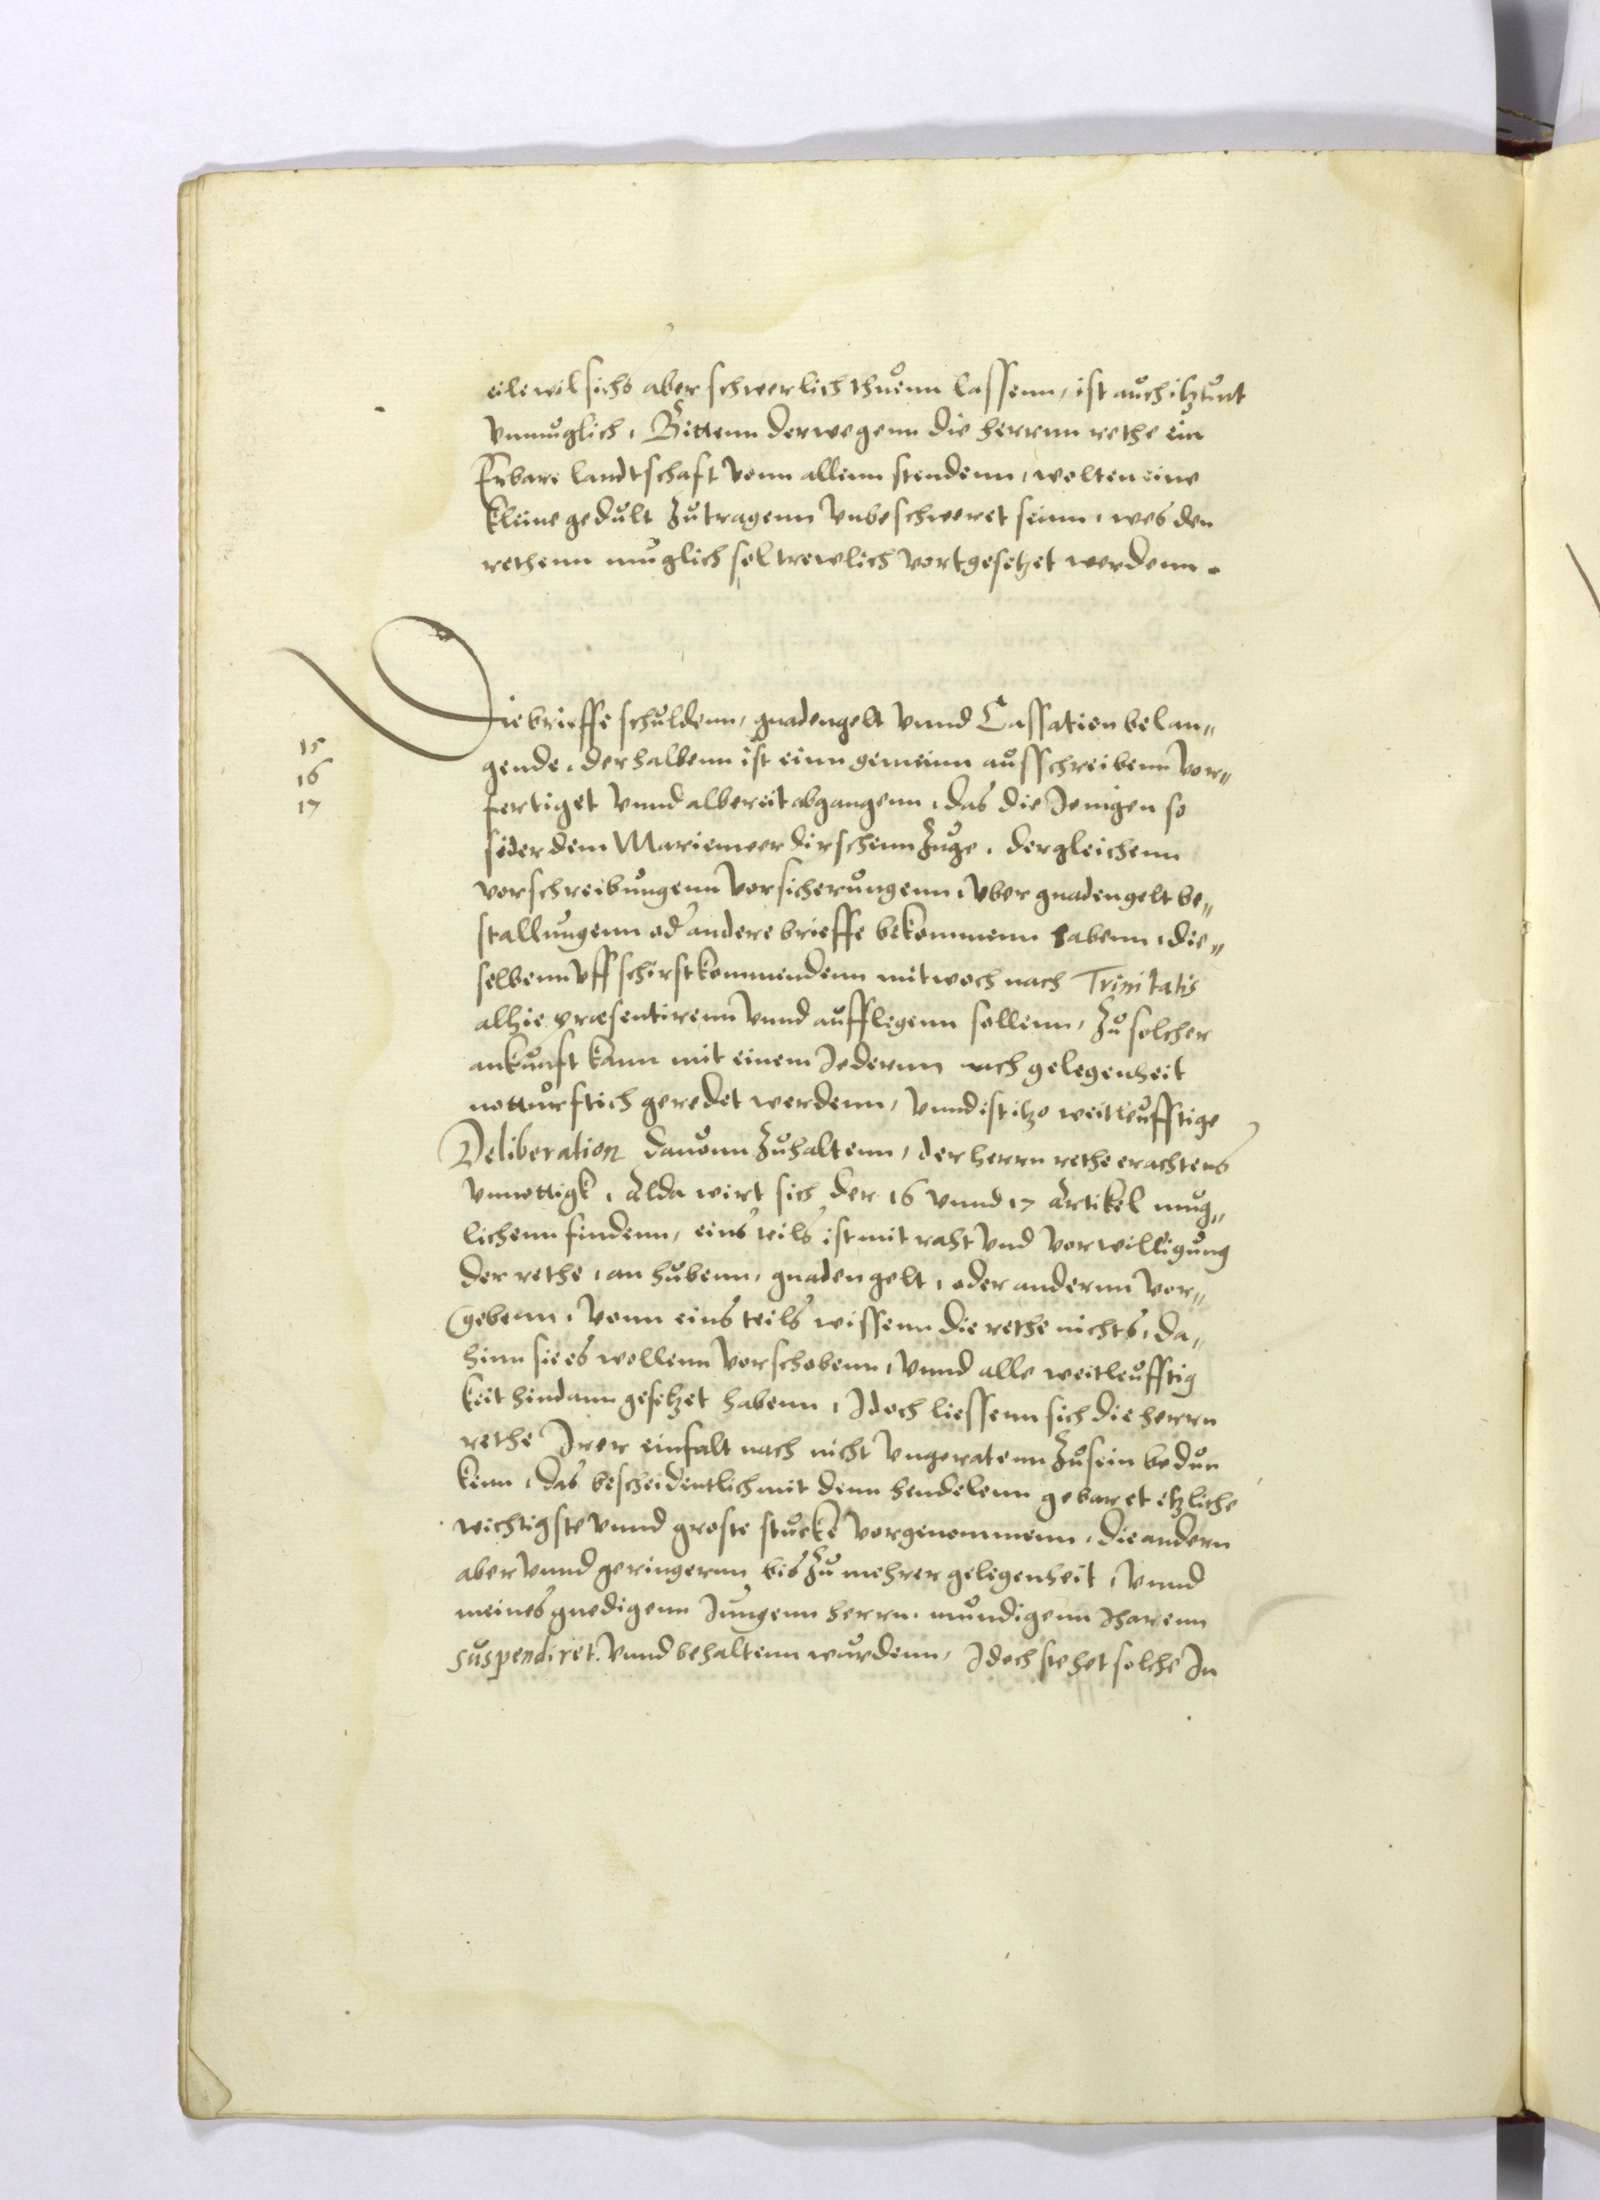 eile wil sichs aber schwerlich thuenn lassenn, ist auch itzunt
vnmuglich, Bittenn derwegenn die herrnn rethe ein
Erbare landtschaft vonn allenn stendenn, wolten eine
kleine gedult zutragenn vnbeschweret seinn, wes den
rethenn muglich sol trewlich vortgesetzet werdenn.
Die brieffe schuldenn, gnadengelt vnnd Cassation belan„
15
gende, derhalbenn ist einn gemeinn ausschreibenn vor„
16
fertiget vnnd albereit abgangenn, das die Jenigen so
17
sider dem Marienwerdirschenn Zuge, dergleichenn
vorschreibungenn vorsicherungenn, vber gnadengelt be„
stallungenn od andere brieffe bekommenn habenn, die„
selbenn vff schirstkommendenn mitwoch nach Trinitatis
alhie præsentirenn vnnd aufflegenn sollenn, Zu solcher
ankunft kann mit einem Jedernn nach gelegenheit
notturftich geredet werdenn, vnnd ist itzo weitleufftige
Deliberation dauonn Zuhaltenn, der herrn rethe erachtens
vnnottigk, Alda wirt sich der 16 vnnd 17 Artikel mug„
lichenn findenn, eins teils ist mit raht vnd vorwilligung
der rethe, an hubenn, gnadengelt, oder andernn vor„
gebenn, vonn eins teils wissenn die rethe nichts, da„
hinn sie es wollenn vorschobenn, vnnd alle weitleufftig
keit hindann gesetzet habenn, Jdoch liessenn sich die herrn
rethe Jrer einfalt nach nicht vngeratenn Zusein bedun
kenn, das bescheidentlich mit denn hendelenn gebaret etzliche
wichtigste vnnd groste stucke vorgenommenn, die andern
aber vnnd geringernn bis Zu mehrer gelegenheit, vnnd
meines gnedigenn Jungenn herrn mundigenn Jharenn
suspendiret vnnd behaltenn wurdenn, Jdoch stehet solche Jn